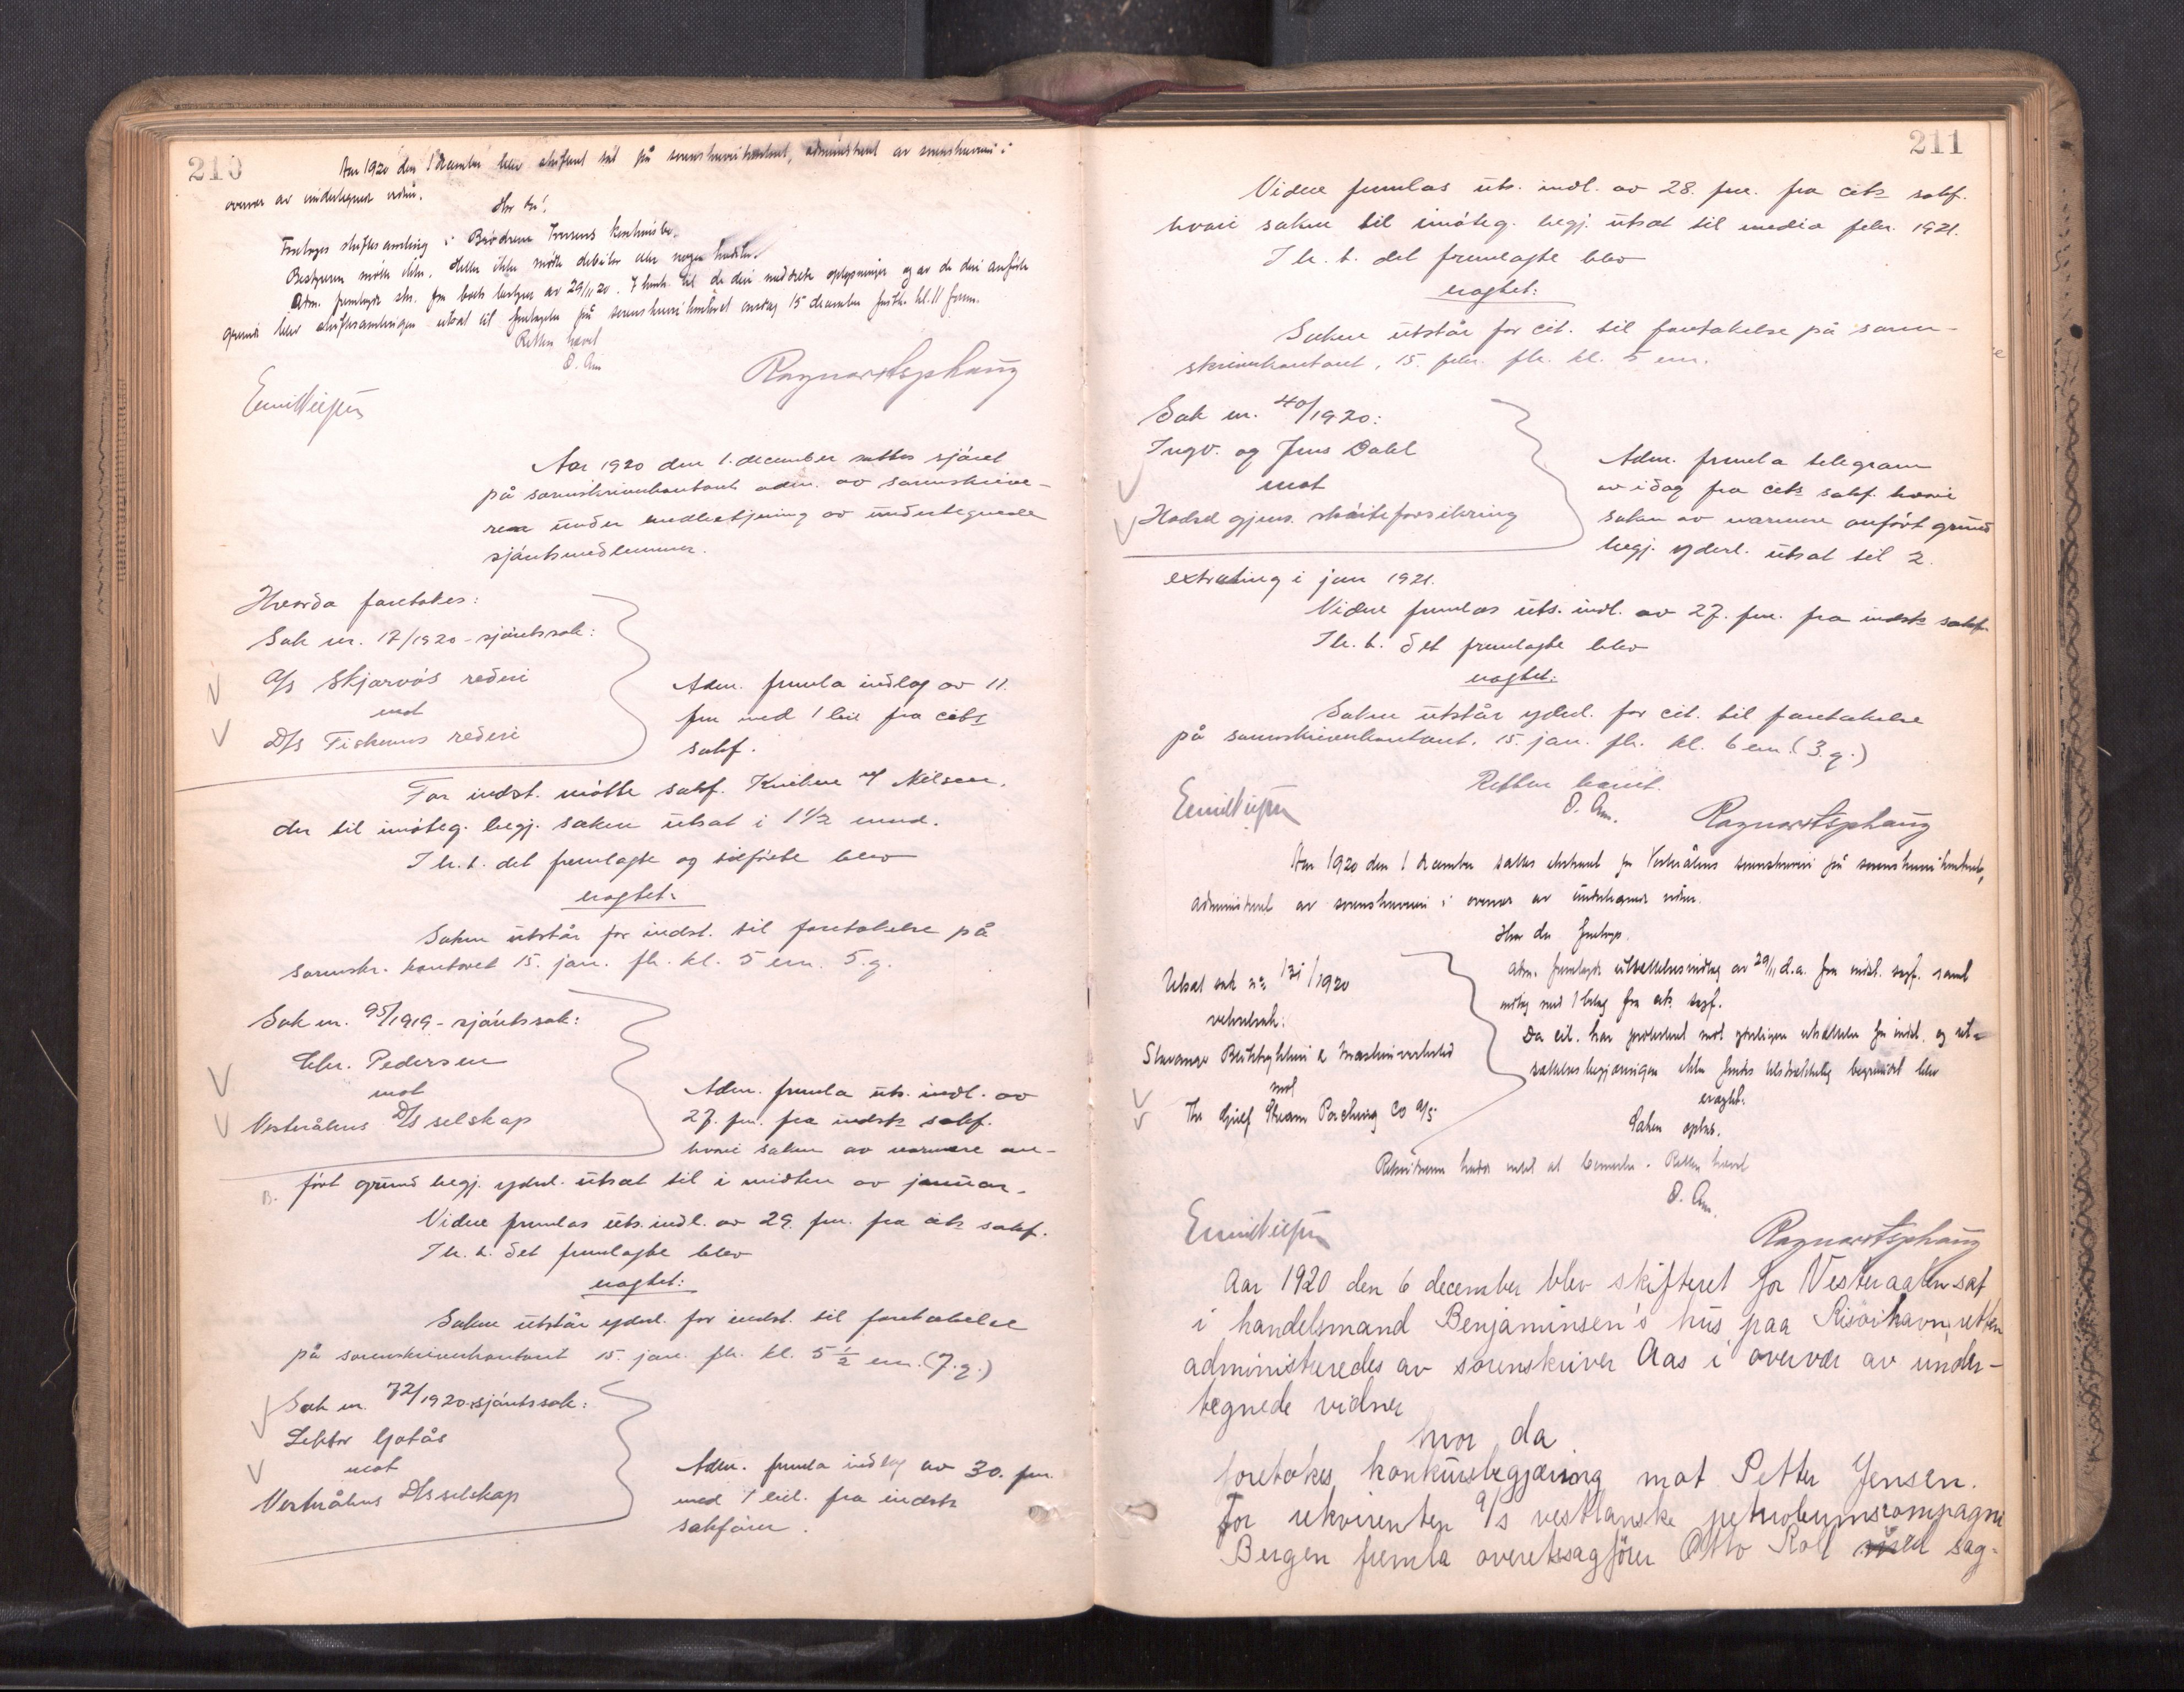 210
Aar 1920 den 1 december blev skifteret sat på sorenskriverkontoret, administreret av sorenskriveren i
overvær av undertegnede vidner.
Hvor da:
Foretoges skiftesamling i Brødrene konkursbo.
Bestyreren møtte ikke. Heller ikke møtte debitor eller nogen kreditor.
Adm. fremlagde skr. fra boets bestyrer av 29/11 20. I henh. til de deri meddelte oplysninger og av de deri anførte
grunde blev skiftesamlingen utsat til foretagelse på sorenskriverkontoret onsdag 15 december førstk. kl. 11 form.
Retten hævet
O. Aas
Ragnar Asphaug
Emil
Aar 1920 den 1. december sattes sjóret
på sorenskriverkontoret adm. av sorenskrive-
ren under medbetjening av undertegnede
sjóretsmedlemmer.
Hvorda foretokes:
Sak nr. 17/1920 - sjóretssak:
A/S Skjervøs rederi
mot
D/S Fiskerens rederi
Adm. fremla indlæg av 11.
fm med 1 bil fra cits
sakf.
For indst. mótte sakf. Nilsen,
der til imóteg. begj. saken utsat i 1 1/2 mnd.
I h. t. det fremlagte og tilfórte blev
eragtet:
Saken utstår for indst. til foretakelse på
sorenskr. kontoret 15. jan. fk. kl. 5 em. 5. g.
Sak nr. 95/1919 - sjóretssak:
Chr. Pedersen
mot
Vesterålens D/S selskap
Adm. fremla uts. indl. av
27. fm. fra indsts sakf.
hvori saken av nærmere an-
fórt grund begj. yderl. utsat til i midten av januar.
Videre fremlas uts. indl. av 29. fm. fra cits sakf.
I h. t. det fremlagte blev
eragtet:
Saken utstår yderl. for indst. til foretakelse
på sorenskriverkontoret 15. jan. fk. kl. 5 1/2 em. (7. g.)
Sak nr. 72/1920 - sjóretssak:
Lektor Gotås
mot
Vesterålens D/S selskap
Adm. fremla indlæg av 30. fm
med 1 bil. fra indsts
sakfórer.
211
Videre fremlas uts. indl. av 28. fm. fra cits sakf.
hvori saken til imóteg. begj. utsat til media febr. 1921.
I h. t. det fremlagte blev
eragtet:
Saken utstår for cit. til foretakelse på soren-
skriverkontoret, 15. febr. fk. kl. 5 em.
Sak nr. 40/1920:
Ingv. og Jens Dahl
mot
Hadsel gjens. skóiteforsikring
Adm. fremla telegram
av idag fra cits sakf. hvori
saken av nærmere anfórt grund
begj. yderl. utsat til 2.
extrating i jan 1921.
Videre fremlas uts. indl. av 27. fm. fra indsts sakf.
I h. t. det fremlagte blev
eragtet:
Saken utstår yderl. for cit. til foretakelse
på sorenskriverkontoret, 15. jan. fk. kl. 6 em. (3. g.)
Retten hævet.
O. Aas.
Emil
Ragnar Asphaug
Aar 1920 den 1 december sattes ekstraret for Vesterålens sorenskriveri på sorenskriverkontoret,
administreret av sorenskriveren i overvær av undertegnede vidner.
Hvor da foretoges.
Utsat sak nr. 131/1920
vekselsak:
Stavanger Blikktrykkeri & Maskinverksted
mot
The Gulf Stream Packing Co A/S
Adm. fremlagde utsættelsesindlæg av 29/11 d.a. fra indst. sagf. samt
indlæg med 1 bilag fra cits sagf.
Da cit. har protesteret mot yderligere utsættelse for indst. og ut-
sættelsesbegjæringen ikke findes tilstrækkelig begrundet blev
eragtet:
Saken optas.
Retsvidnerne hadde intet at bemerke. Retten hævet
O. Aas.
Emil
Ragnar Asphaug
Aar 1920 den 6 december blev skifteret for Vesteraalen sat
i handelsmand Benjaminsen's hus paa Risöihavn, retten
administreredes av sorenskriver Aas i overvær av under-
tegnede vidner
hvor da
foretokes konkursbegjæring mot Petter Jensen.
For rekvirenten A/S vestlanske petroleumscompagni
Bergen fremla overretssagfører Otto Roll sag-